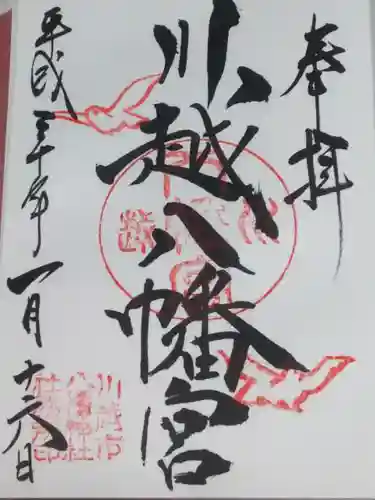 奉拝
川越八幡宮
平成三十年一月十六日
川越市
八幡神社
社務所印